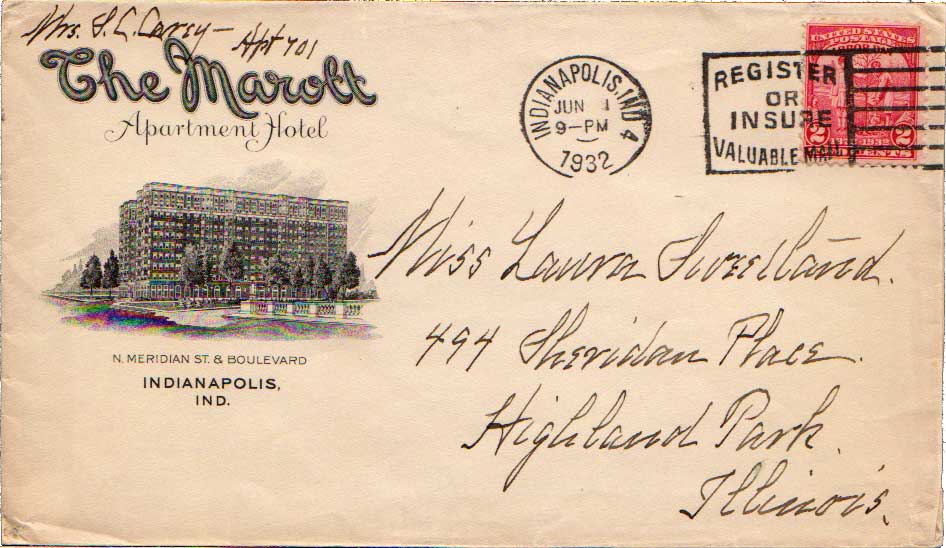 Mrs. S. C. Carey - Apt 701
The Marott
Apartment Hotel
N. MERIDIAN ST. & BOULEVARD
INDIANAPOLIS,
IND.
INDIANAPOLIS, IND 4
JUN 1
9-PM
1932
REGISTER
OR
INSURE
VALUABLE MAIL
UNITED STATES
POSTAGE
ARBOR DAY
2 2
CENTS
Miss Laura
494 Sheridan Place.
Highland Park.
Illinois.